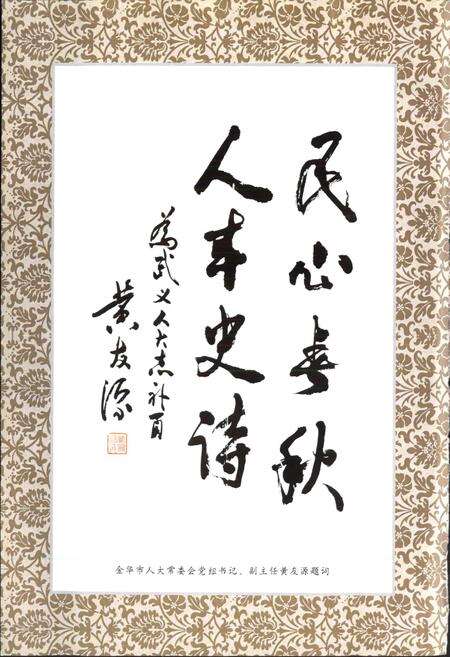 民心春秋
人本史诗
為武义人大志补頁
黄友源
金华市人大常委会党组书记、副主任黄友源题词